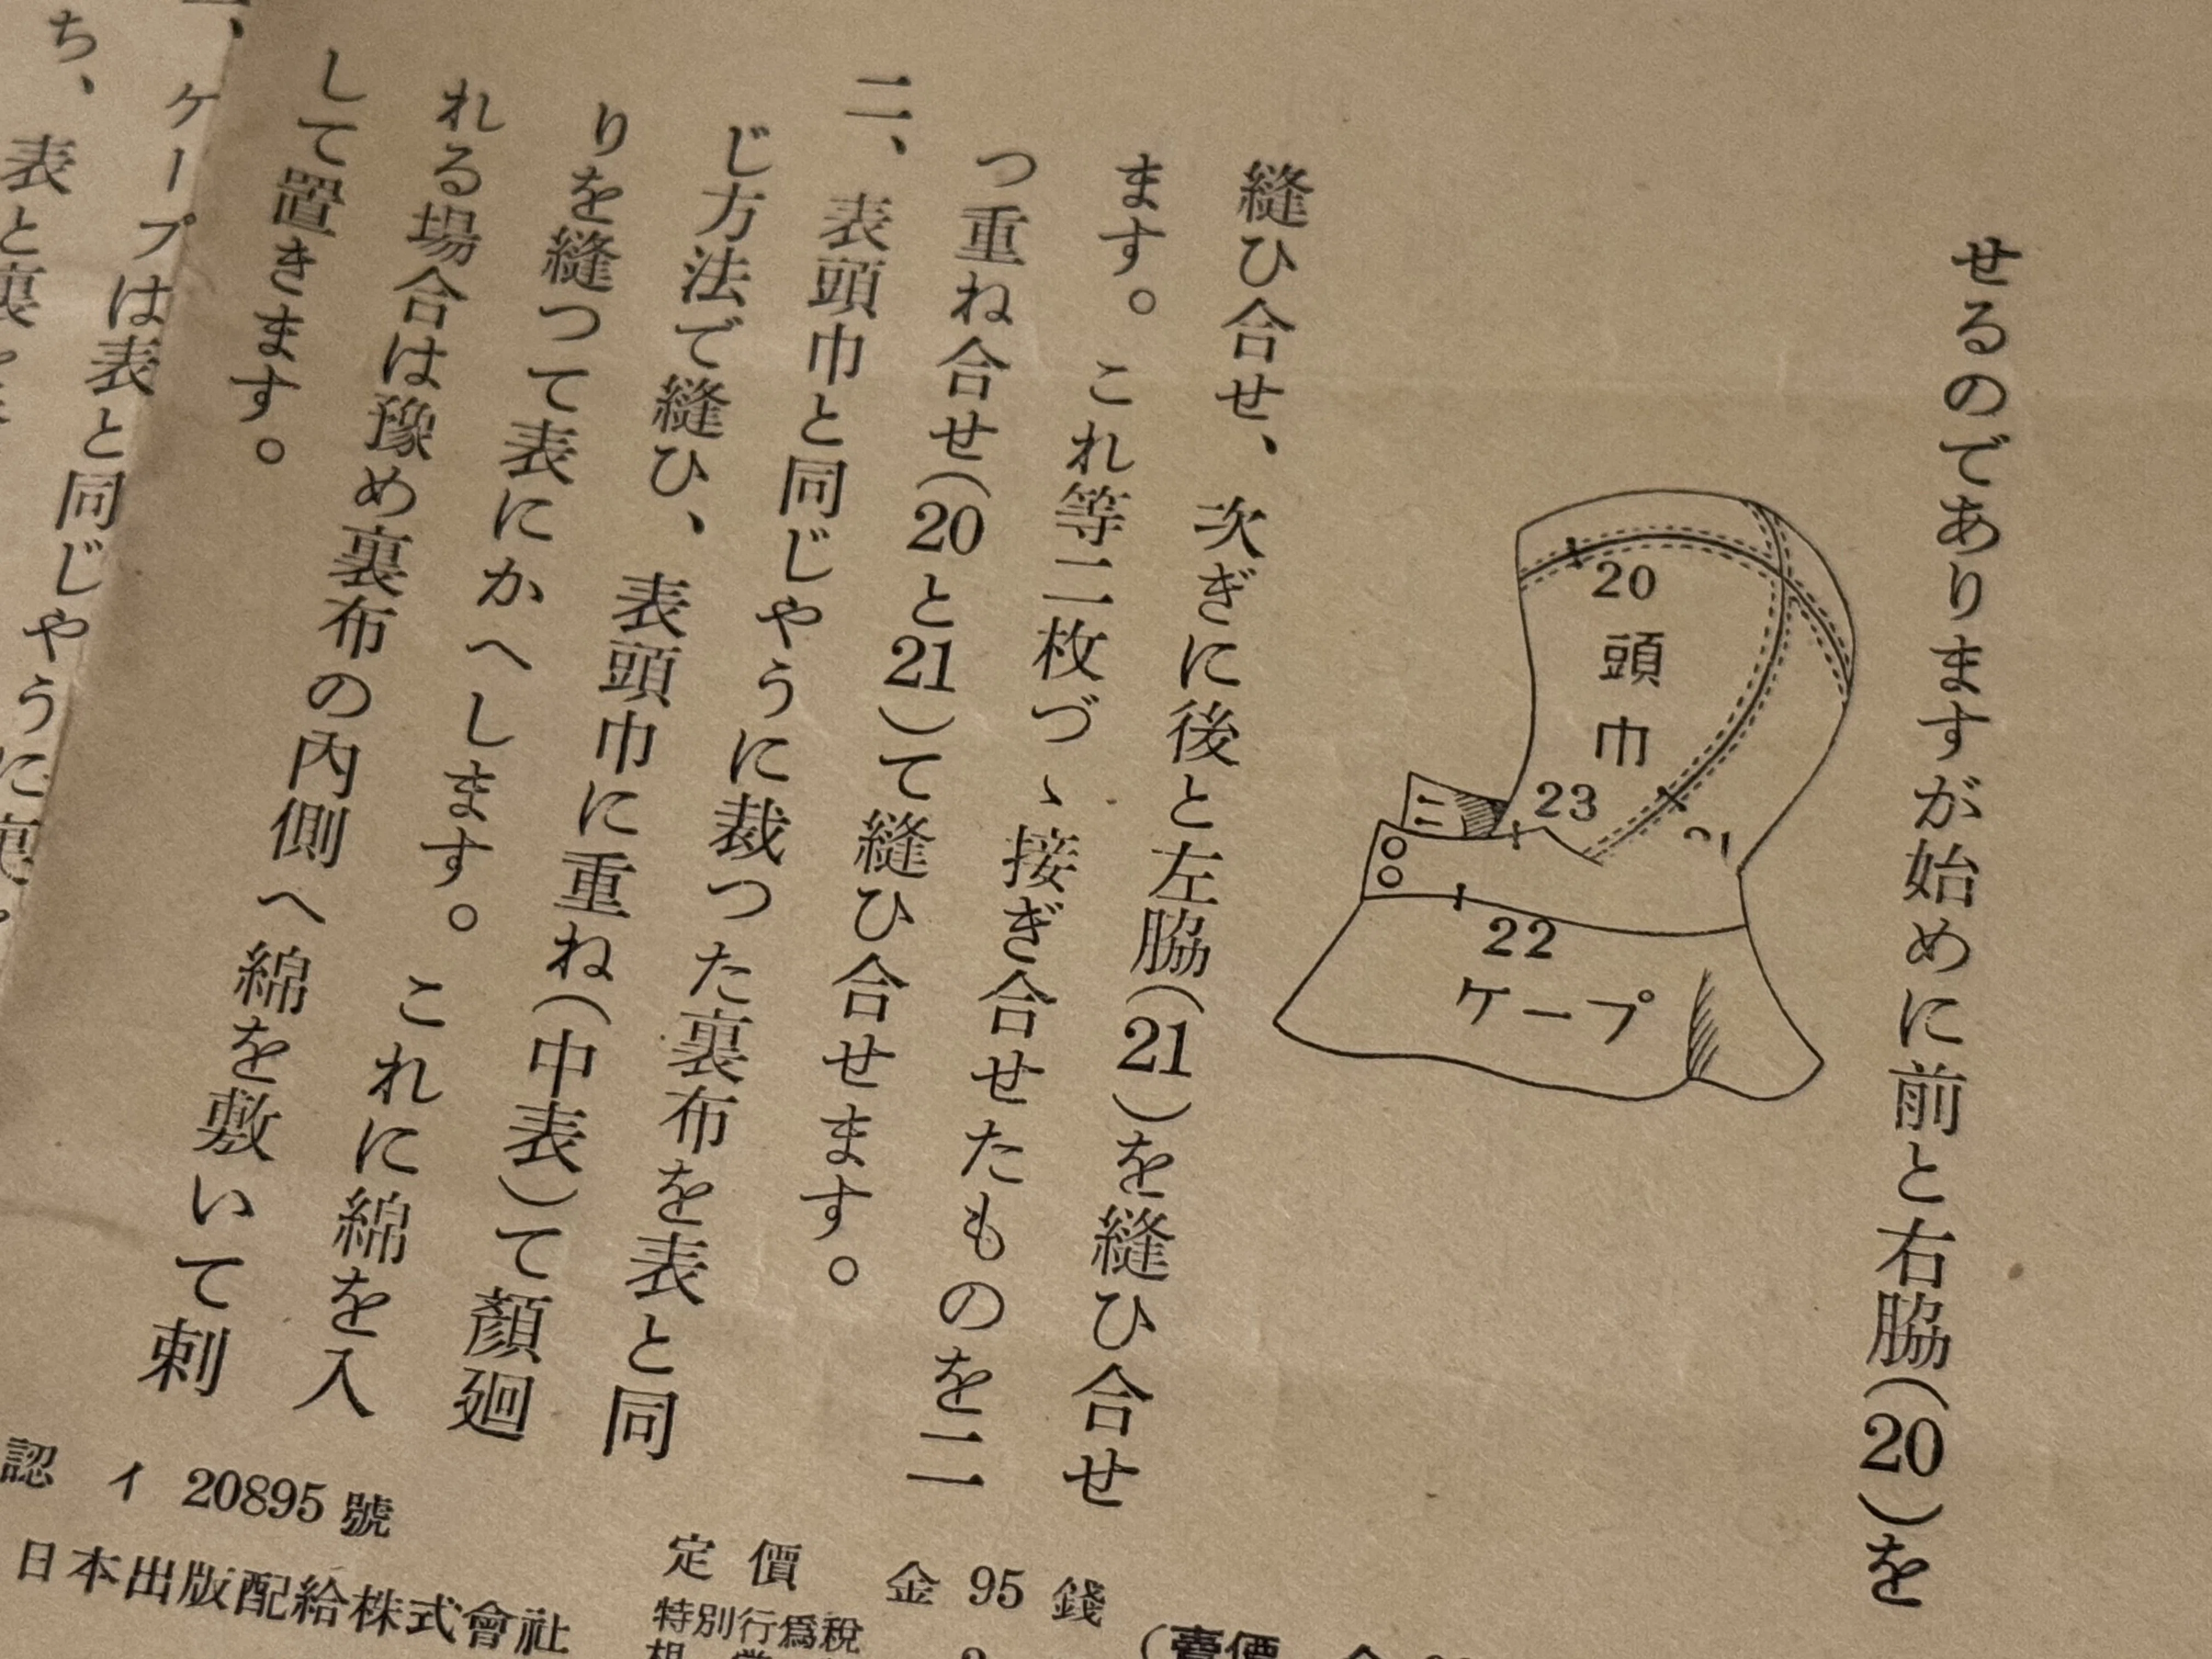 せるのでありますが始めに前と右脇(20)を
20
頭巾
23
22
ケープ
縫ひ合せ、次ぎに後と左脇(21)を縫ひ合せ
ます。これ等二枚づゝ接ぎ合せたものを二
つ重ね合せ(20と21)て縫ひ合せます。
二、表頭巾と同じやうに裁つた裏布を表と同
じ方法で縫ひ、表頭巾に重ね(中表)て顏廻
りを縫つて表にかへします。これに綿を入
れる場合は豫め裏布の內側へ綿を敷いて刺
して置きます。
ケープは表と同じやうに裏
ち、表と裏
認 イ 20895 號
日本出版配給株式會社
定價 金 95 錢
特別行爲稅
(賣價